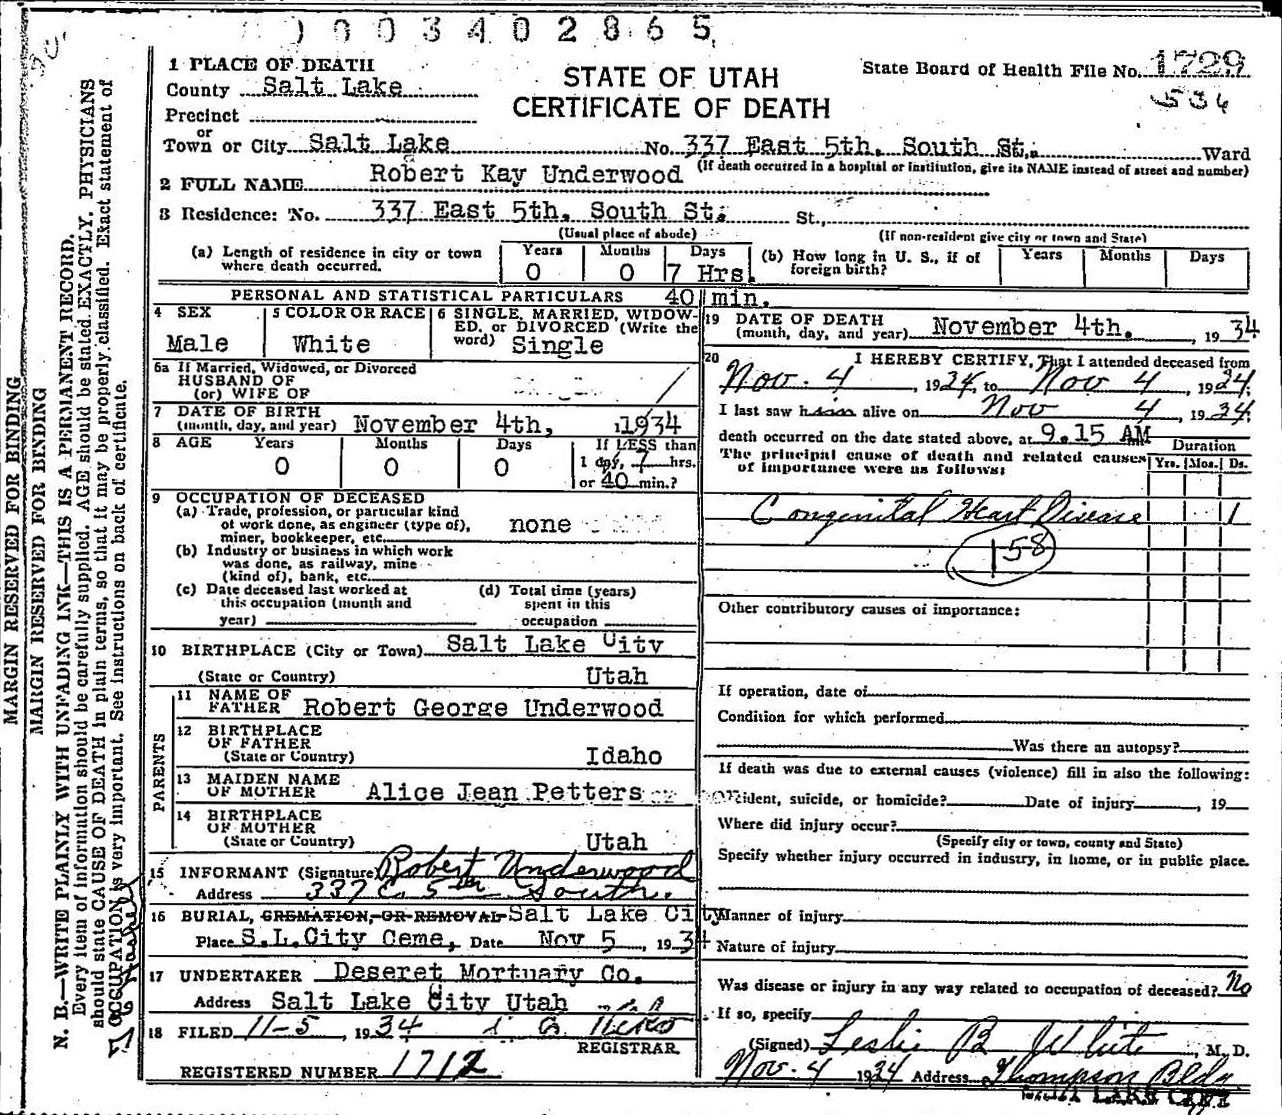 003402865
1 PLACE OF DEATH
County Salt Lake
STATE OF UTAH
CERTIFICATE OF DEATH
State Board of Health File No. 1729
534
Precinct
or
Town or City Salt Lake No. 337 East 5th. South St. Ward
(If death occurred in a hospital or institution, give its NAME instead of street and number)
2 FULL NAME Robert Kay Underwood
3 Residence: No. 337 East 5th. South St. St.,
(Usual place of abode) (If non-resident give city or town and State)
(a) Length of residence in city or town where death occurred. Years 0 Months 0 Days 7 Hrs. 40 min.
(b) How long in U. S., if of foreign birth? Years Months Days
PERSONAL AND STATISTICAL PARTICULARS
4 SEX Male
5 COLOR OR RACE White
6 SINGLE, MARRIED, WIDOWED, or DIVORCED (Write the word) Single
6a If Married, Widowed, or Divorced
HUSBAND OF
(or) WIFE OF
7 DATE OF BIRTH
(month, day, and year) November 4th, 1934
8 AGE Years 0 Months 0 Days 0 If LESS than
1 day, 7 hrs.
or 40 min.?
9 OCCUPATION OF DECEASED
(a) Trade, profession, or particular kind
of work done, as engineer (type of),
miner, bookkeeper, etc. none
(b) Industry or business in which work
was done, as railway, mine
(kind of), bank, etc.
(c) Date deceased last worked at
this occupation (month and
year)
(d) Total time (years)
spent in this
occupation
10 BIRTHPLACE (City or Town) Salt Lake City
(State or Country) Utah
PARENTS
11 NAME OF
FATHER Robert George Underwood
12 BIRTHPLACE
OF FATHER
(State or Country) Idaho
13 MAIDEN NAME
OF MOTHER Alice Jean Petters
14 BIRTHPLACE
OF MOTHER
(State or Country) Utah
15 INFORMANT (Signature) Robert Underwood
Address 337 E. 5th South.
16 BURIAL, CREMATION, OR REMOVAL Salt Lake City
Place S.L.City Ceme, Date Nov 5, 1934
17 UNDERTAKER Deseret Mortuary Co.
Address Salt Lake City Utah
18 FILED 11-5, 1934
REGISTRAR.
REGISTERED NUMBER 1712
19 DATE OF DEATH
(month, day, and year) November 4th. , 1934
20 I HEREBY CERTIFY, That I attended deceased from
Nov. 4, 1934, to Nov 4, 1934.
I last saw him alive on Nov 4, 1934.
death occurred on the date stated above, at 9.15 AM
The principal cause of death and related causes
of importance were as follows:
Duration
Yrs. Mos. Ds.
Congenital Heart Disease 1
158
Other contributory causes of importance:
If operation, date of
Condition for which performed
Was there an autopsy?
If death was due to external causes (violence) fill in also the following:
Accident, suicide, or homicide? Date of injury , 19
Where did injury occur?
(Specify city or town, county and State)
Specify whether injury occurred in industry, in home, or in public place.
Manner of injury
Nature of injury
Was disease or injury in any way related to occupation of deceased? No
If so, specify
(Signed) Leslie B White, M. D.
Nov. 4 1934 Address Thompson Bldg.
SALT LAKE CITY
MARGIN RESERVED FOR BINDING
MARGIN RESERVED FOR BINDING
N. B.—WRITE PLAINLY WITH UNFADING INK—THIS IS A PERMANENT RECORD.
Every item of information should be carefully supplied. AGE should be stated EXACTLY. PHYSICIANS
should state CAUSE OF DEATH in plain terms, so that it may be properly classified. Exact statement of
OCCUPATION is very important. See instructions on back of certificate.